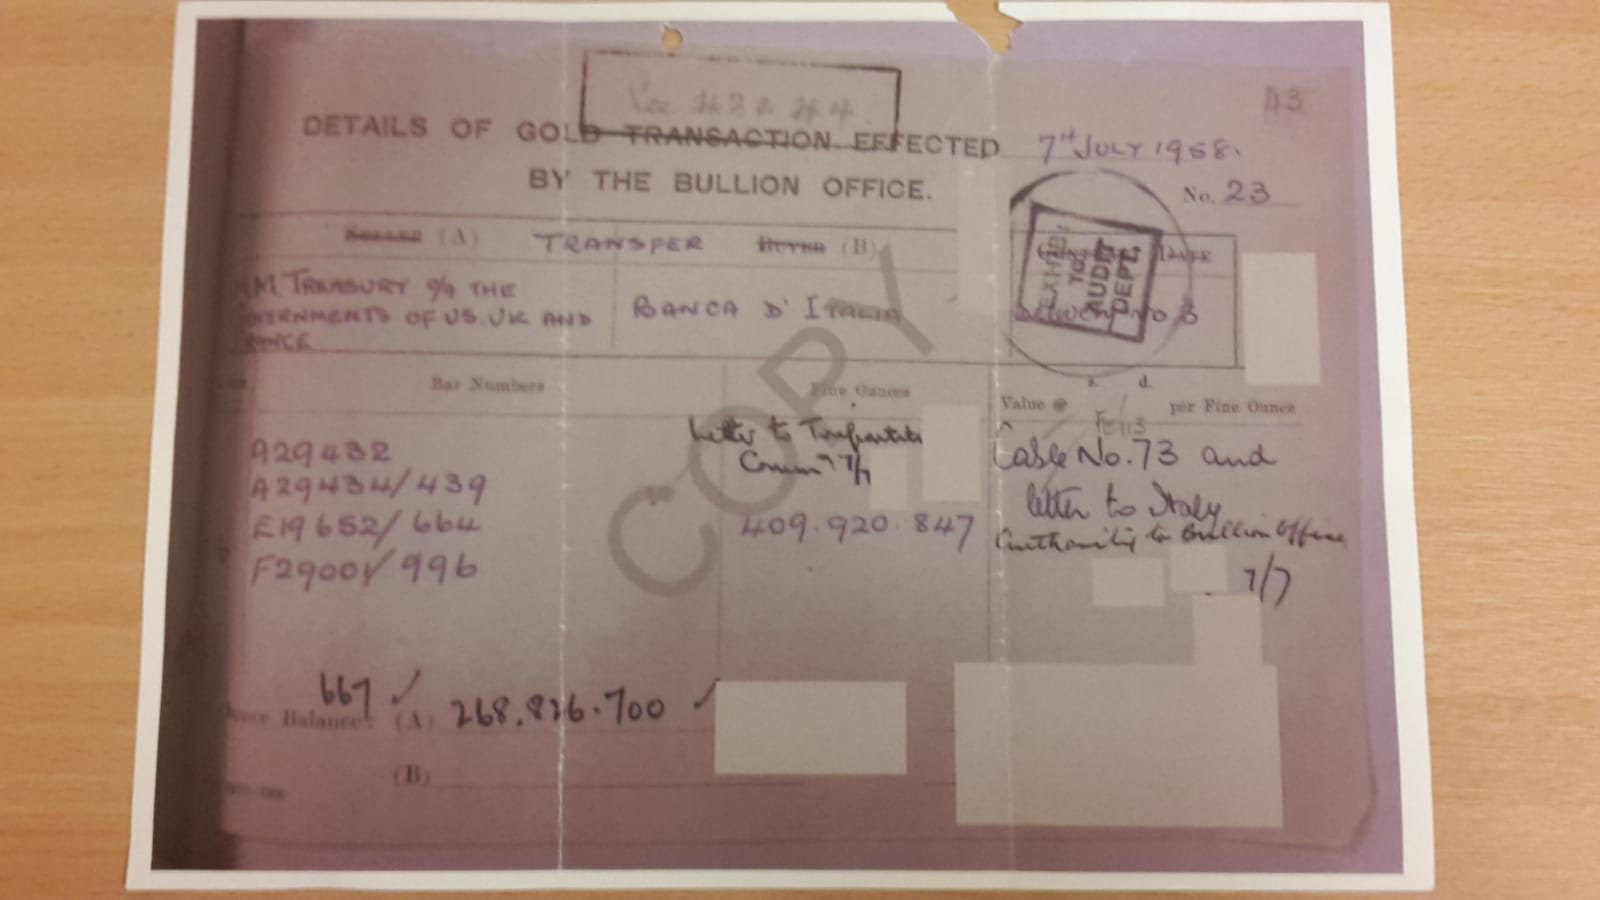 43
DETAILS OF GOLD TRANSACTION EFFECTED 7TH JULY 1958.
BY THE BULLION OFFICE.
No. 23
SELLER (A) TRANSFER BUYER (B)
DATE
EXHIBITED TO AUDIT DEPT.
H.M. TREASURY O/A THE
GOVERNMENTS OF US. UK AND
FRANCE
BANCA D' ITALIA
Bar Numbers
Fine Ounces
s. d.
Value per Fine Ounce
A29432
A29434/439
E19652/664
F29001/996
Letter to Tripartite
Commn 7/7
409.920.847
Cable No. 73 and
letter to Italy
Authority to Bullion Office
7/7
667
Ounce Balance: (A) 268.826.700
(B)
COPY